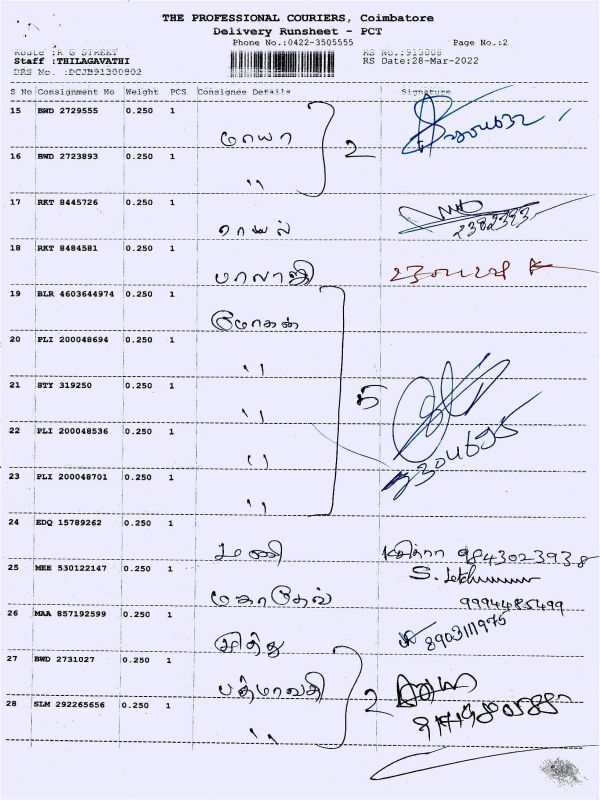 THE PROFESSIONAL COURIERS, Coimbatore
Delivery Runsheet - PCT
Phone No.:0422-3505555 Page No.:2
Route :R G STREET RS No.:913008
Staff :THILAGAVATHI RS Date:28-Mar-2022
DRS No. :DCJB91300802
S No Consignment No Weight PCS Consignee Details Signature
15 BWD 2729555 0.250 1
மாயா 2
16 BWD 2723893 0.250 1
"
17 RKT 8445726 0.250 1
2382393
18 RKT 8484581 0.250 1
பாலாஜி
19 BLR 4603644974 0.250 1
மோகன்
20 PLI 200048694 0.250 1
"
21 STY 319250 0.250 1
" 5
22 PLI 200048536 0.250 1
"
23 PLI 200048701 0.250 1
"
24 EDQ 15789262 0.250 1
மணி 9843023938
25 MEE 530122147 0.250 1
மகாதேவ் 9994485499
26 MAA 857192599 0.250 1
முத்து 8903111975
27 BWD 2731027 0.250 1
பத்மாவதி 2
28 SLM 292265656 0.250 1
"